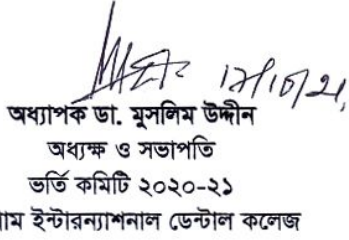 ১৭/১০/২১
অধ্যাপক ডা. মুসলিম উদ্দীন
অধ্যক্ষ ও সভাপতি
ভর্তি কমিটি ২০২০-২১
ইন্টারন্যাশনাল ডেন্টাল কলেজ